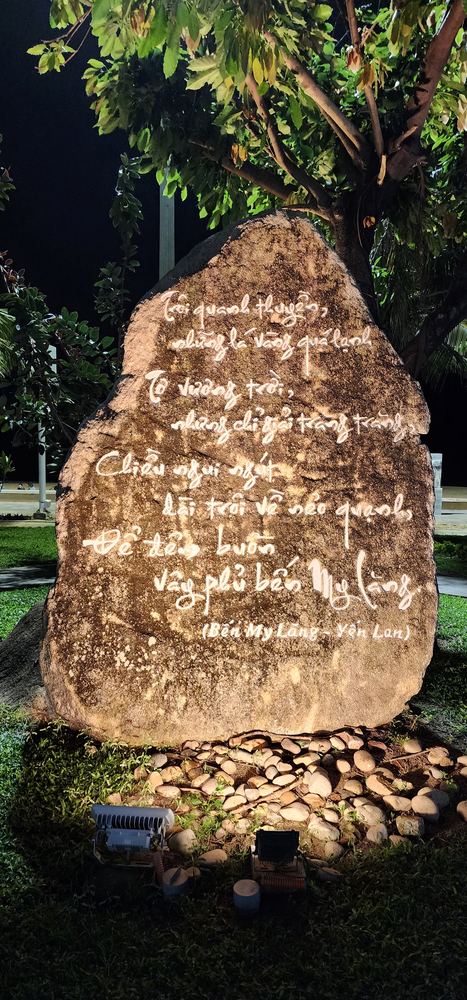 Trôi quanh thuyền,
những lá vàng quá lạnh
Tơ vương trời,
những chỉ giải trăng trăng,
Chiều ngui ngút
dài trôi về nẻo quạnh,
Để đêm buồn
vây phủ bến My Lăng.
(Bến My Lăng - Yến Lan)